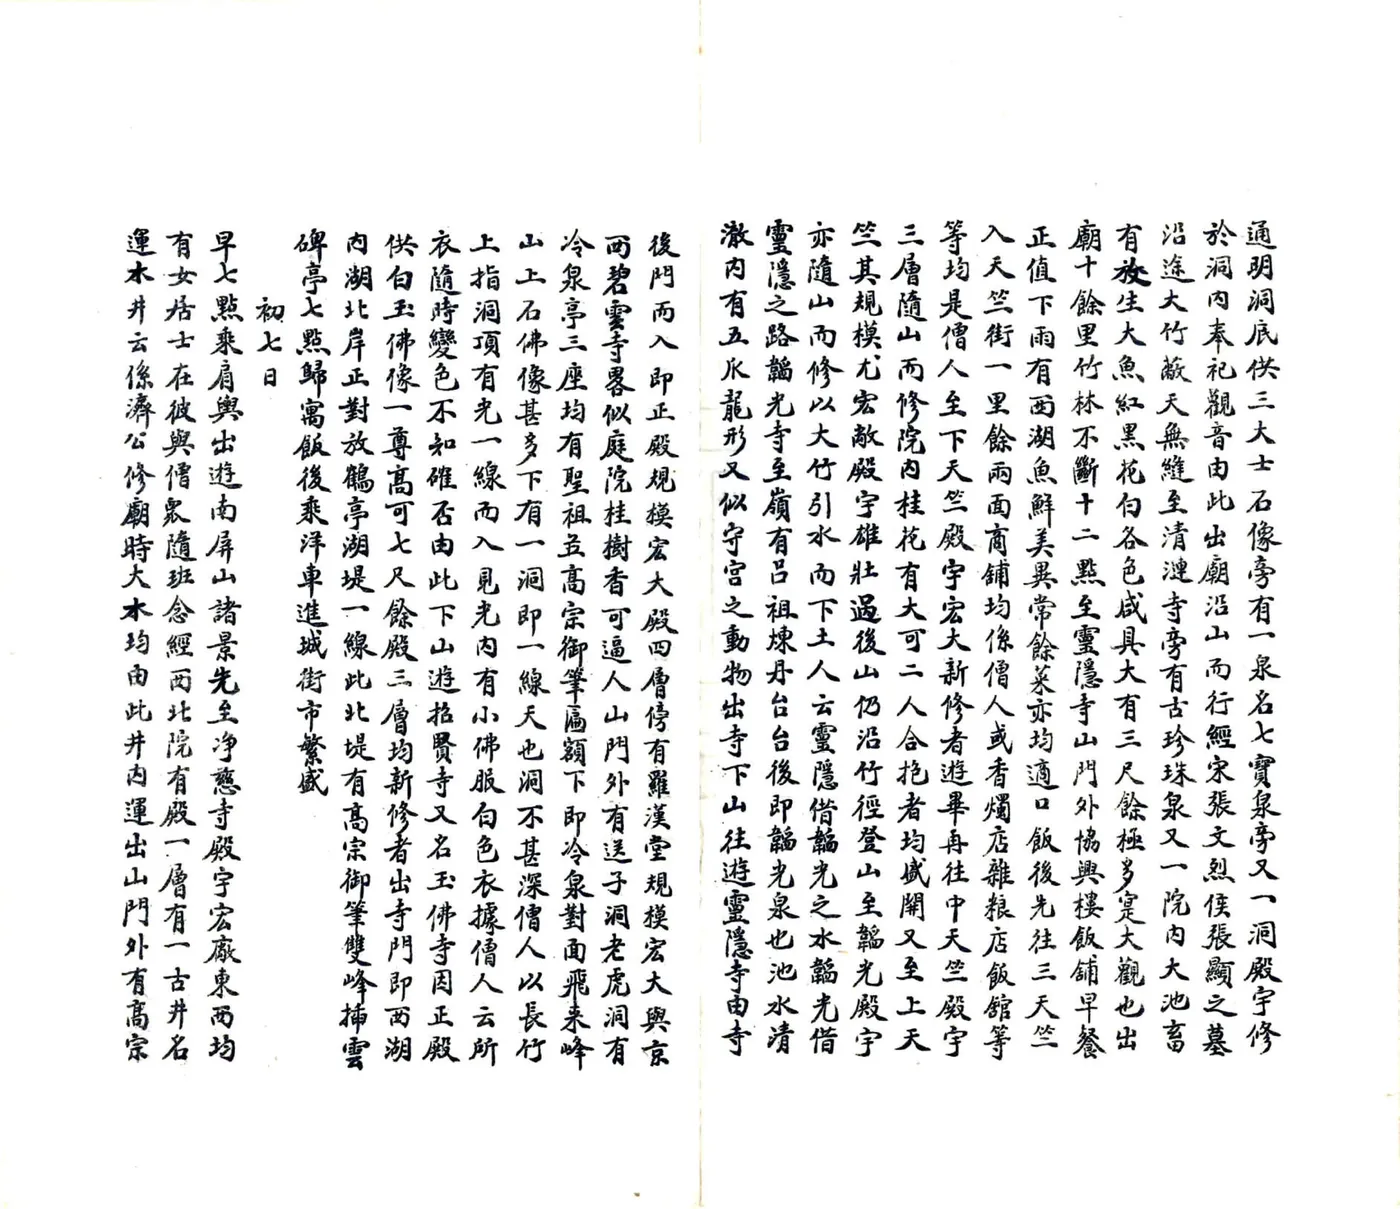 通明洞底供三大士石像旁有一泉名七寶泉旁又一洞殿宇修
於洞內奉祀觀音由此出廟沿山而行經宋張文烈侯張顯之墓
沿途大竹蔽天無縫至清漣寺旁有古珍珠泉又一院內大池畜
有放生大魚紅黑花白各色咸具大有三尺餘極多寔大觀也出
廟十餘里竹林不斷十二點至靈隱寺山門外協興樓飯舖早餐
正值下雨有西湖魚鮮美異常餘菜亦均適口飯後先往三天竺
入天竺街一里餘兩面商舖均係僧人或香燭店雜粮店飯舘等
等均是僧人至下天竺殿宇宏大新修者遊畢再往中天竺殿宇
三層隨山而修院內桂花有大可二人合抱者均盛開又至上天
竺其規模尤宏敞殿宇雄壯過後山仍沿竹徑登山至韜光殿宇
亦隨山而修以大竹引水而下土人云靈隱借韜光之水韜光借
靈隱之路韜光寺至嶺有呂祖煉丹台台後即韜光泉也池水清
澈內有五爪龍形又似守宮之動物出寺下山往遊靈隱寺由寺
後門而入即正殿規模宏大殿四層傍有羅漢堂規模宏大與京
西碧雲寺畧似庭院桂樹香可逼人山門外有送子洞老虎洞有
冷泉亭三座均有聖祖並高宗御筆匾額下即冷泉對面飛来峰
山上石佛像甚多下有一洞即一線天也洞不甚深僧人以長竹
上指洞頂有光一線而入見光內有小佛服白色衣據僧人云所
衣隨時變色不知確否由此下山遊招賢寺又名玉佛寺因正殿
供白玉佛像一尊高可七尺餘殿三層均新修者出寺門即西湖
內湖北岸正對放鶴亭湖堤一線此北堤有高宗御筆雙峰揷雲
碑亭七點歸寓飯後乘洋車進城街市繁盛
初七日
早七點乘肩輿出遊南屏山諸景先至净慈寺殿宇宏廠東西均
有女居士在彼與僧衆隨班念經西北院有殿一層有一古井名
運水井云係濟公修廟時大水均由此井內運出山門外有高宗